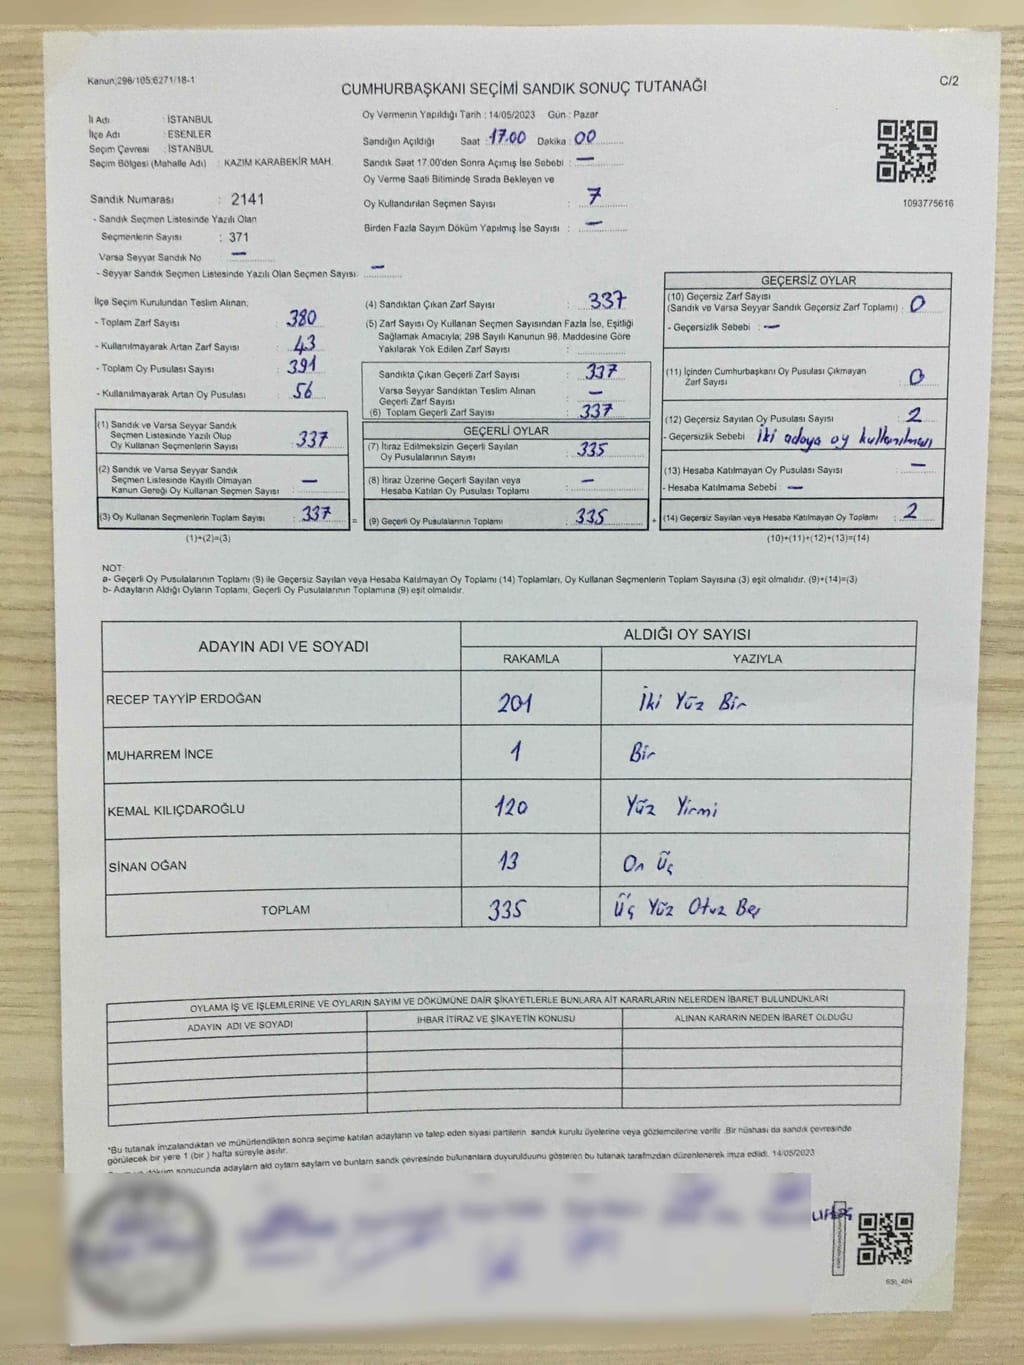 Kanun;298/105;6271/18-1
CUMHURBAŞKANI SEÇİMİ SANDIK SONUÇ TUTANAĞI
C/2
İl Adı : İSTANBUL
İlçe Adı : ESENLER
Seçim Çevresi : İSTANBUL
Seçim Bölgesi (Mahalle Adı) : KAZIM KARABEKİR MAH.
Sandık Numarası : 2141
- Sandık Seçmen Listesinde Yazılı Olan
Seçmenlerin Sayısı : 371
Varsa Seyyar Sandık No —
- Seyyar Sandık Seçmen Listesinde Yazılı Olan Seçmen Sayısı. —
Oy Vermenin Yapıldığı Tarih : 14/05/2023 Gün : Pazar
Sandığın Açıldığı Saat : 17.00 Dakika : 00
Sandık Saat 17.00'den Sonra Açımış İse Sebebi : —
Oy Verme Saati Bitiminde Sırada Bekleyen ve
Oy Kullandırılan Seçmen Sayısı : 7
Birden Fazla Sayım Döküm Yapılmış İse Sayısı : —
1093775616
İlçe Seçim Kurulundan Teslim Alınan;
- Toplam Zarf Sayısı 380
- Kullanılmayarak Artan Zarf Sayısı 43
- Toplam Oy Pusulası Sayısı 391
- Kullanılmayarak Artan Oy Pusulası 56
(1) Sandık ve Varsa Seyyar Sandık
Seçmen Listesinde Yazılı Olup
Oy Kullanan Seçmenlerin Sayısı : 337
(2) Sandık ve Varsa Seyyar Sandık
Seçmen Listesinde Kayıtlı Olmayan
Kanun Gereği Oy Kullanan Seçmen Sayısı : —
(3) Oy Kullanan Seçmenlerin Toplam Sayısı : 337
(1)+(2)=(3)
(4) Sandıktan Çıkan Zarf Sayısı : 337
(5) Zarf Sayısı Oy Kullanan Seçmen Sayısından Fazla İse, Eşitliği
Sağlamak Amacıyla; 298 Sayılı Kanunun 98. Maddesine Göre
Yakılarak Yok Edilen Zarf Sayısı :
Sandıkta Çıkan Geçerli Zarf Sayısı : 337
Varsa Seyyar Sandıktan Teslim Alınan
Geçerli Zarf Sayısı : —
(6) Toplam Geçerli Zarf Sayısı : 337
GEÇERLİ OYLAR
(7) İtiraz Edilmeksizin Geçerli Sayılan
Oy Pusulalarının Sayısı : 335
(8) İtiraz Üzerine Geçerli Sayılan veya
Hesaba Katılan Oy Pusulası Toplamı : —
= (9) Geçerli Oy Pusulalarının Toplamı : 335 +
GEÇERSİZ OYLAR
(10) Geçersiz Zarf Sayısı
(Sandık ve Varsa Seyyar Sandık Geçersiz Zarf Toplamı) : 0
- Geçersizlik Sebebi : —
(11) İçinden Cumhurbaşkanı Oy Pusulası Çıkmayan
Zarf Sayısı : 0
(12) Geçersiz Sayılan Oy Pusulası Sayısı : 2
- Geçersizlik Sebebi : İki adaya oy kullanılması
(13) Hesaba Katılmayan Oy Pusulası Sayısı : —
- Hesaba Katılmama Sebebi : —
(14) Geçersiz Sayılan veya Hesaba Katılmayan Oy Toplamı : 2
(10)+(11)+(12)+(13)=(14)
NOT:
a- Geçerli Oy Pusulalarının Toplamı (9) ile Geçersiz Sayılan veya Hesaba Katılmayan Oy Toplamı (14) Toplamları, Oy Kullanan Seçmenlerin Toplam Sayısına (3) eşit olmalıdır. (9)+(14)=(3)
b- Adayların Aldığı Oyların Toplamı, Geçerli Oy Pusulalarının Toplamına (9) eşit olmalıdır.
ADAYIN ADI VE SOYADI
ALDIĞI OY SAYISI
RAKAMLA YAZIYLA
RECEP TAYYİP ERDOĞAN 201 İki Yüz Bir
MUHARREM İNCE 1 Bir
KEMAL KILIÇDAROĞLU 120 Yüz Yirmi
SİNAN OĞAN 13 On Üç
TOPLAM 335 Üç Yüz Otuz Beş
OYLAMA İŞ VE İŞLEMLERİNE VE OYLARIN SAYIM VE DÖKÜMÜNE DAİR ŞİKAYETLERLE BUNLARA AİT KARARLARIN NELERDEN İBARET BULUNDUKLARI
ADAYIN ADI VE SOYADI İHBAR İTİRAZ VE ŞİKAYETİN KONUSU ALINAN KARARIN NEDEN İBARET OLDUĞU
*Bu tutanak imzalandıktan ve mühürlendikten sonra seçime katılan adayların ve talep eden siyasi partilerin sandık kurulu üyelerine veya gözlemcilerine verilir .Bir nüshası da sandık çevresinde
görülecek bir yere 1 (bir ) hafta süreyle asılır.
sonucunda adayların ald oyların sayıların ve bunların sandk çevresinde bulunanlara duyurulduunu gösteren bu tutanak tarafmzdan düzenlenerek imza edildi. 14/05/2023